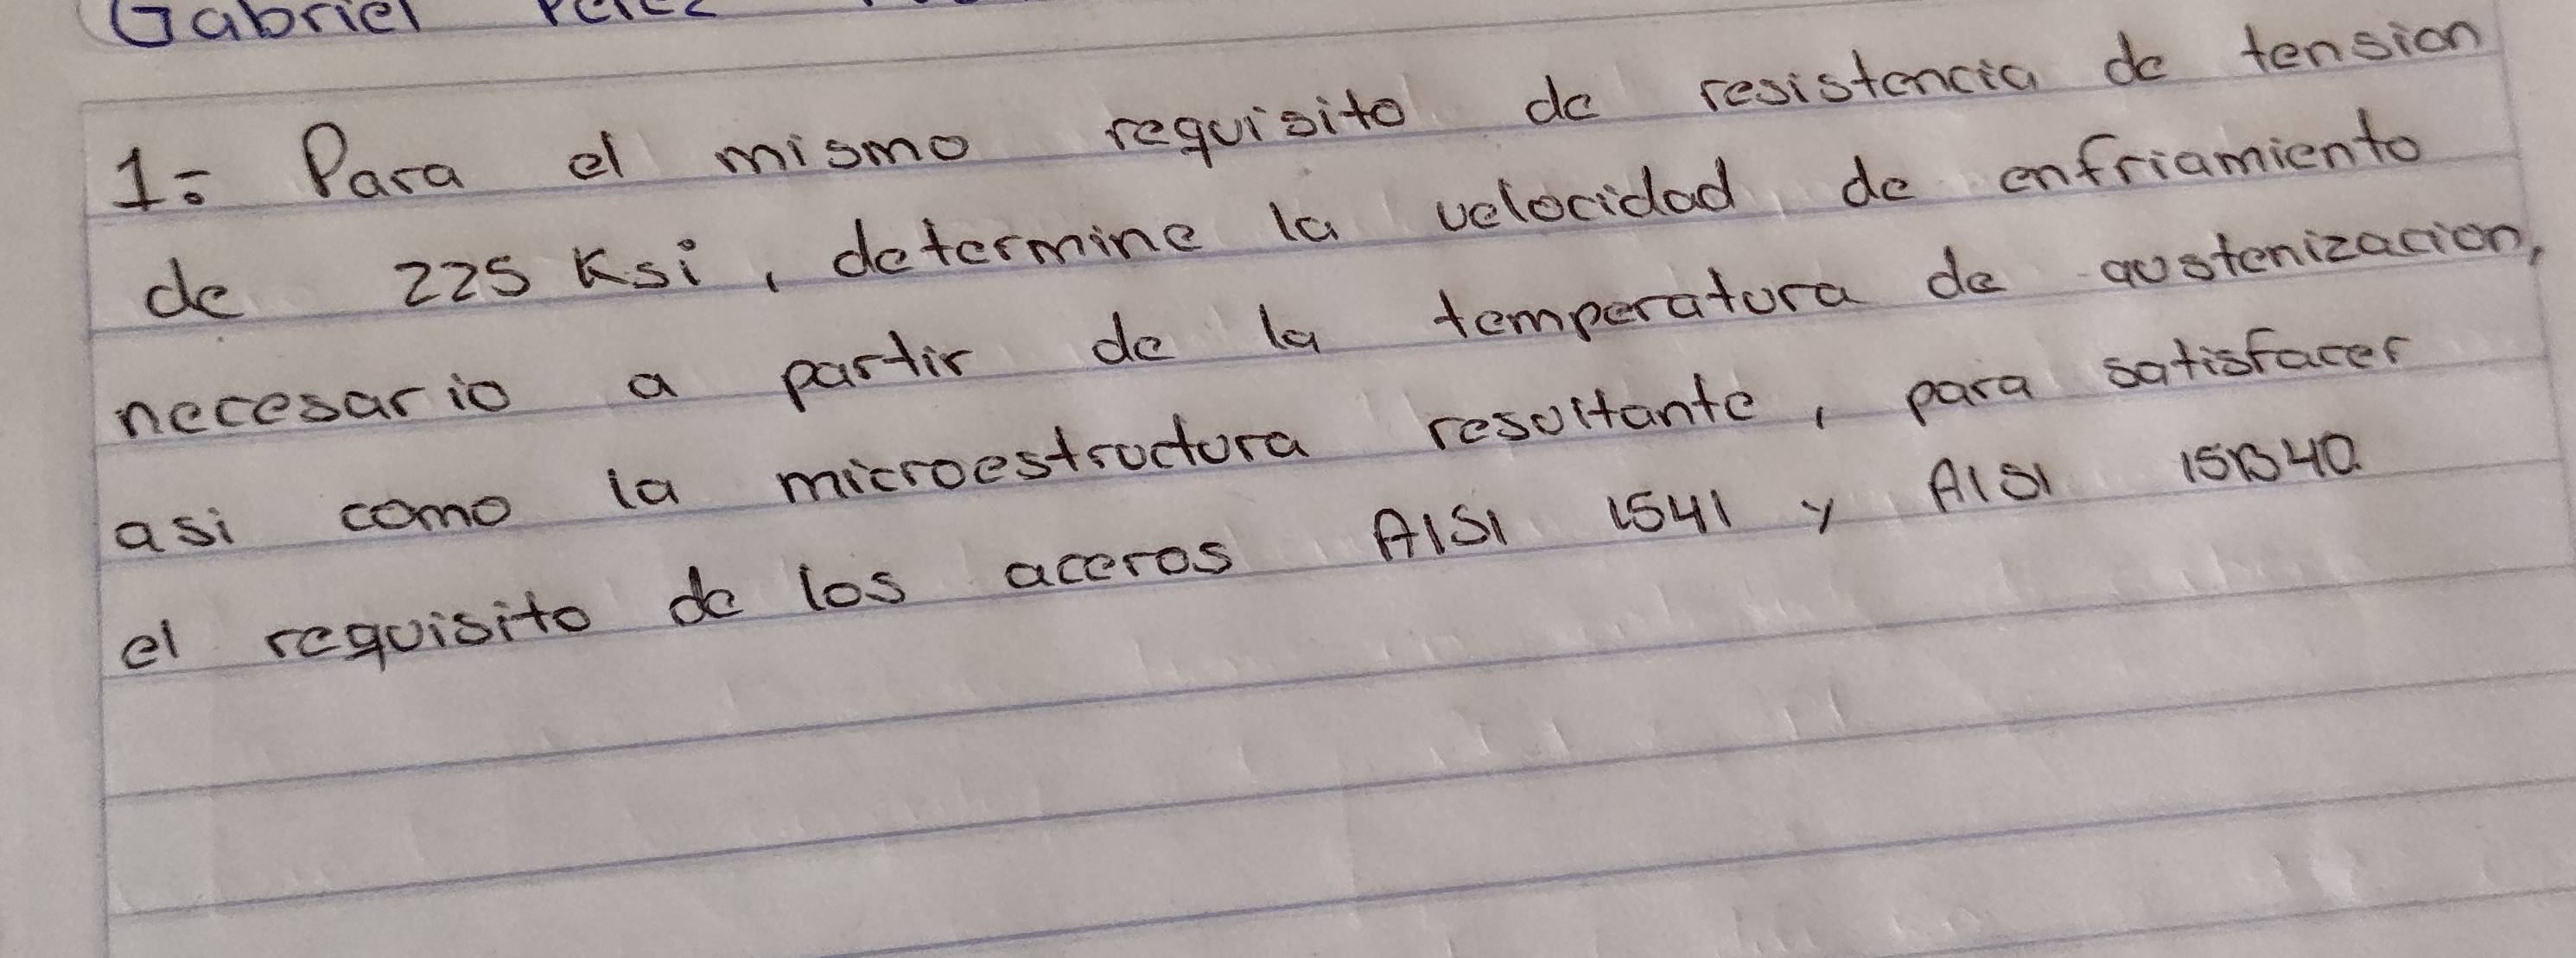 Gabriel Perez
1= Para el mismo requisito de resistencia de tension
de 225 Ksi, determine la velocidad de enfriamiento
necesario a partir de la temperatura de austenizacion,
asi como la microestructura resultante, para satisfacer
el requisito de los aceros AISI 1541 y AISI 15B40.